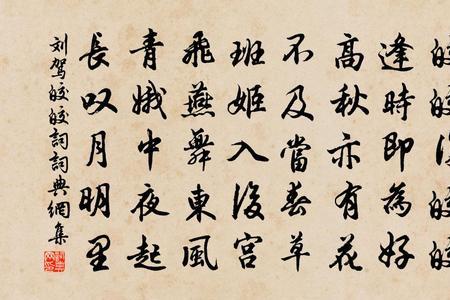 皎皎復皎皎
逢時即為好
高秋亦有花
不及當春草
班姬入後宮
飛燕舞東風
青娥中夜起
長叹月明里
刘驾皎皎詞詞典網集